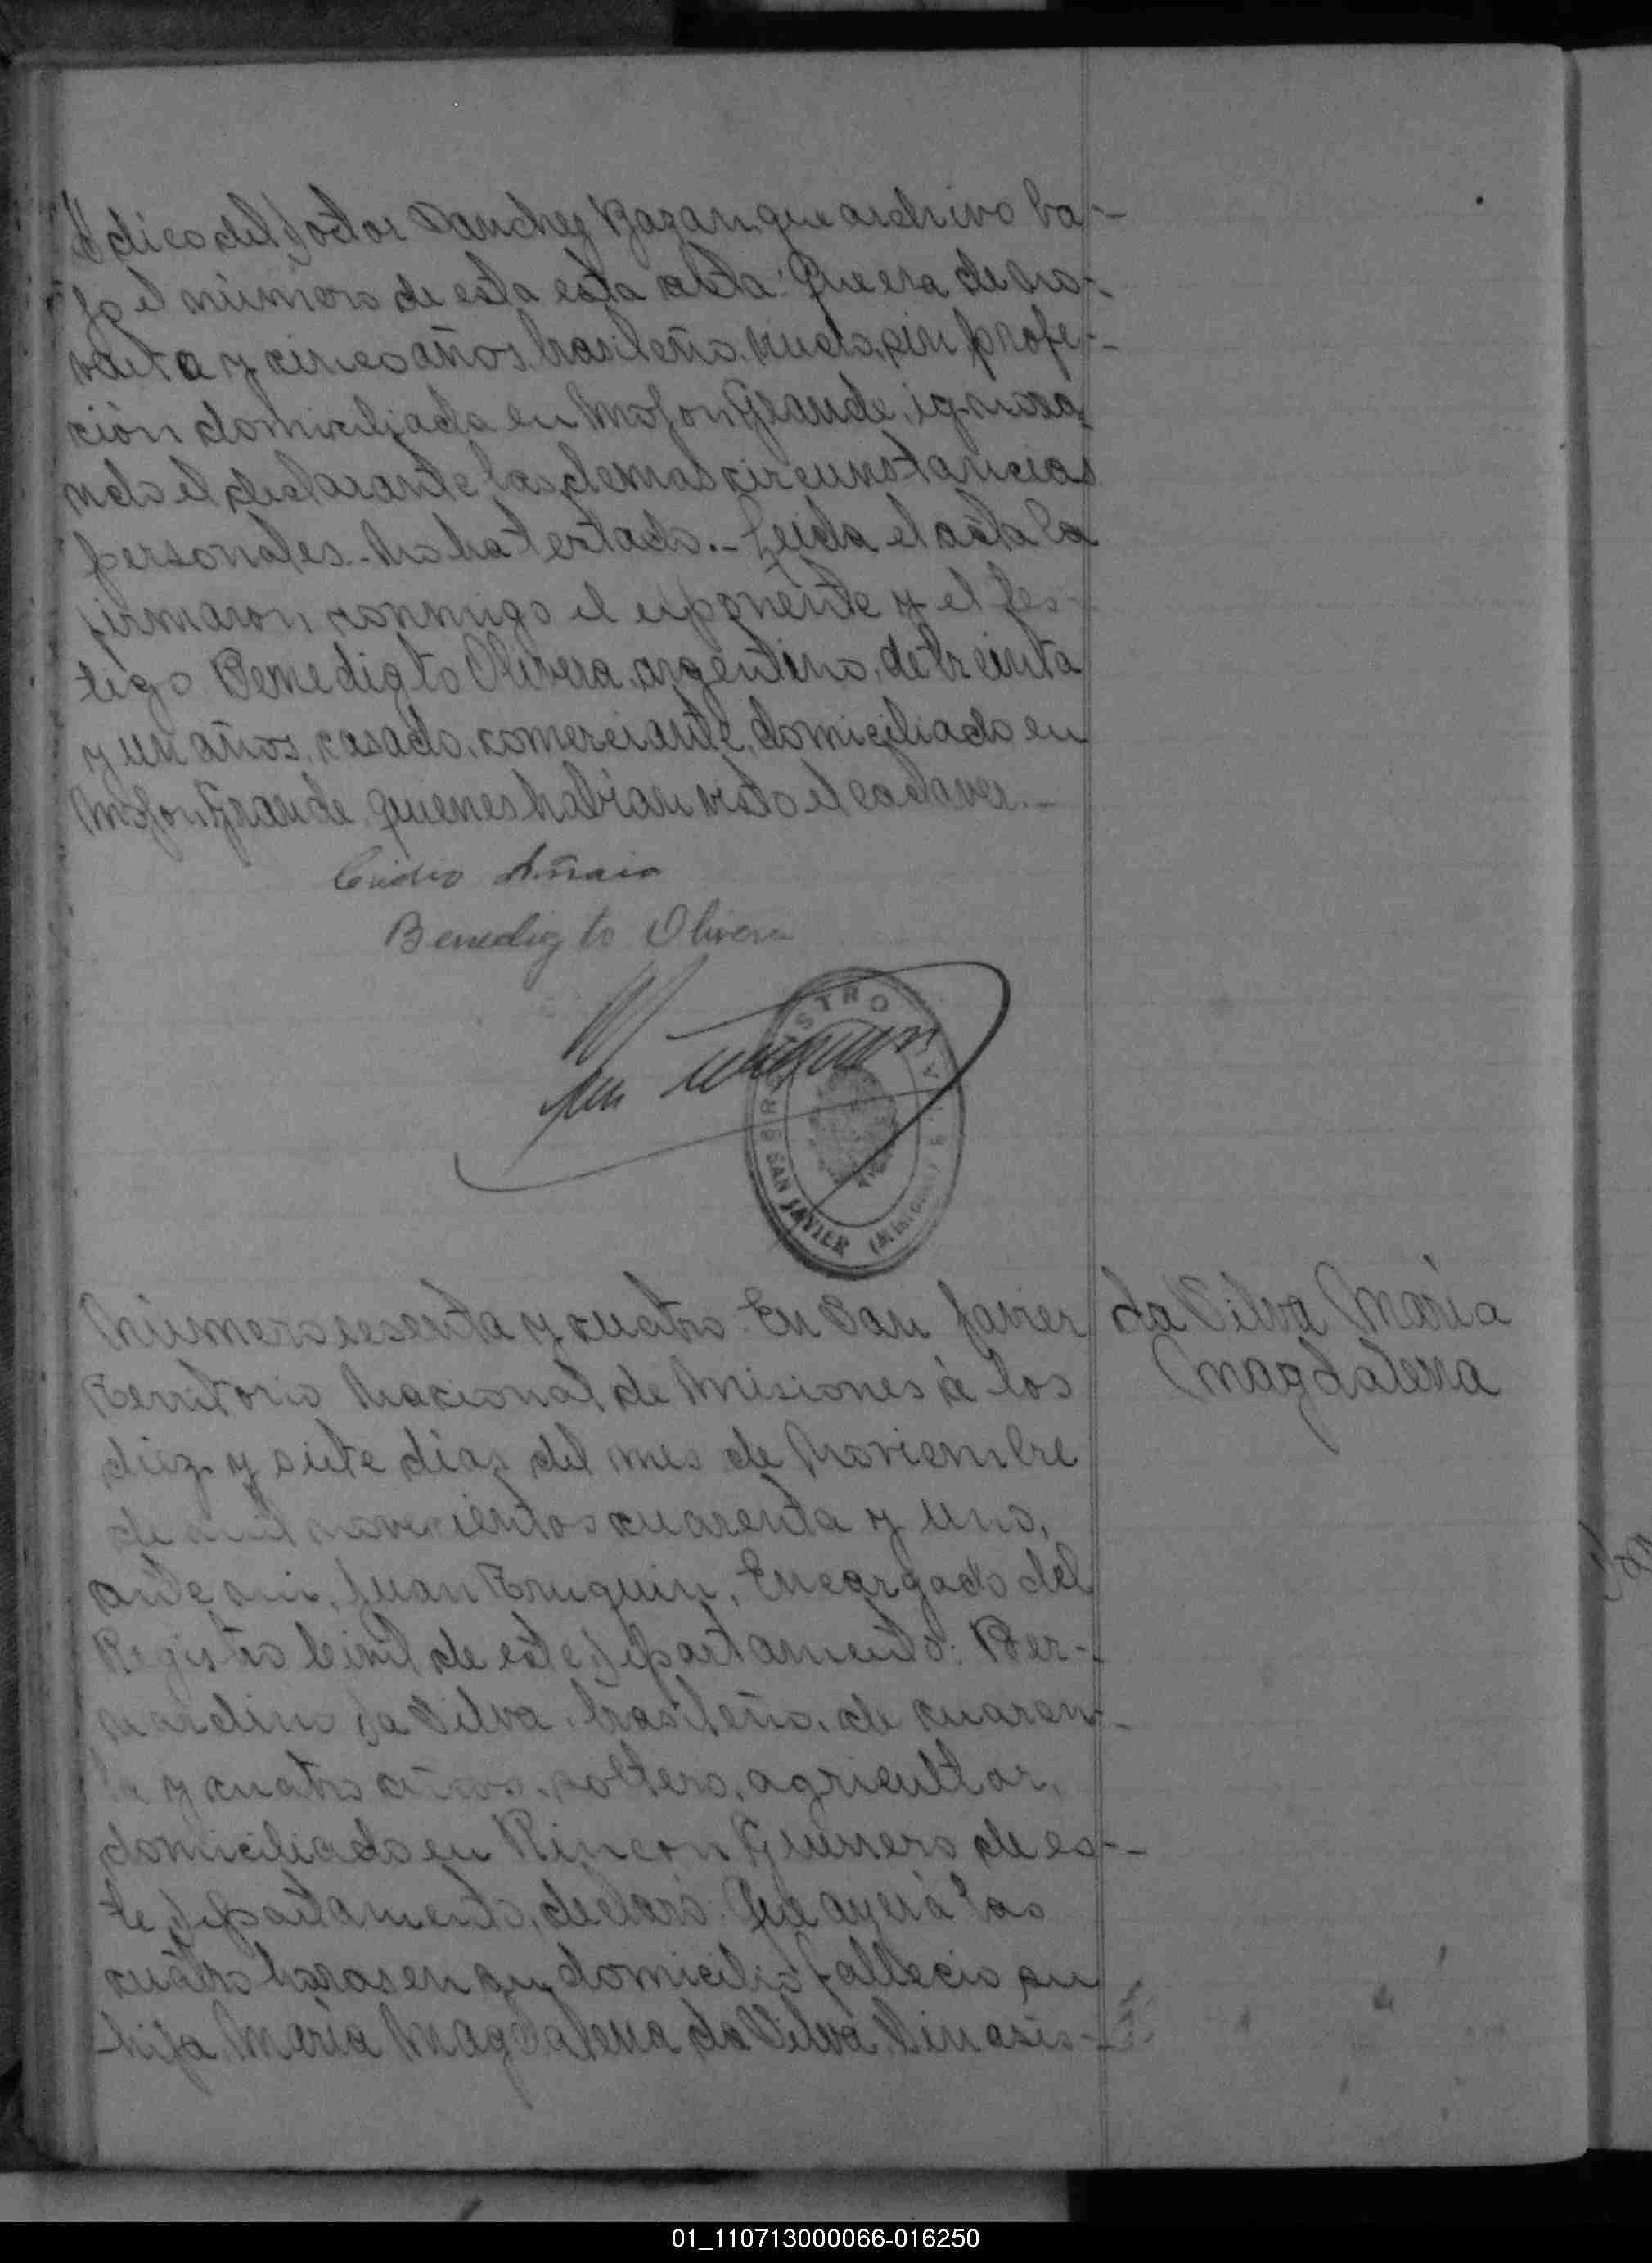 dico del Doctor Sanchez Bazan, que archivo ba-
jo el número de esta esta acta: Que era de no-
venta y cinco años, brasileña, viuda, sin profe-
ción domiciliada en Mojon Grande, ignora
ndo el declarante las demas circunstancias
personales.- No ha testado.- Leida el acta la
firmaron conmigo el exponente y el tes-
tigo Benedigto Olivera, argentino, de treinta
y un años, casado, comerciante, domiciliado en
Mojon Grande, quienes habian visto el cadaver.-
Benedigto Olivera
REGISTRO CIVIL
SAN JAVIER (Misiones)
Número sesenta y cuatro. En San Javier
Territorio Nacional de Misiones á los
diez y siete dias del mes de Noviembre
de mil novecientos cuarenta y uno,
ante mi, Juan Truquin, Encargado del
Registro Civil de este Departamento: Ber-
nardino da Silva, brasileño, de cuaren-
ta y cuatro años, soltero, agricultor,
domiciliado en Rincon Guerrero de es-
te Departamento, declaró: Que ayer á las
cuatro horas en su domicilio falleció su
hija, María Magdalena da Silva, sin asis-
da Silva María
Magdalena
01_110713000066-016250